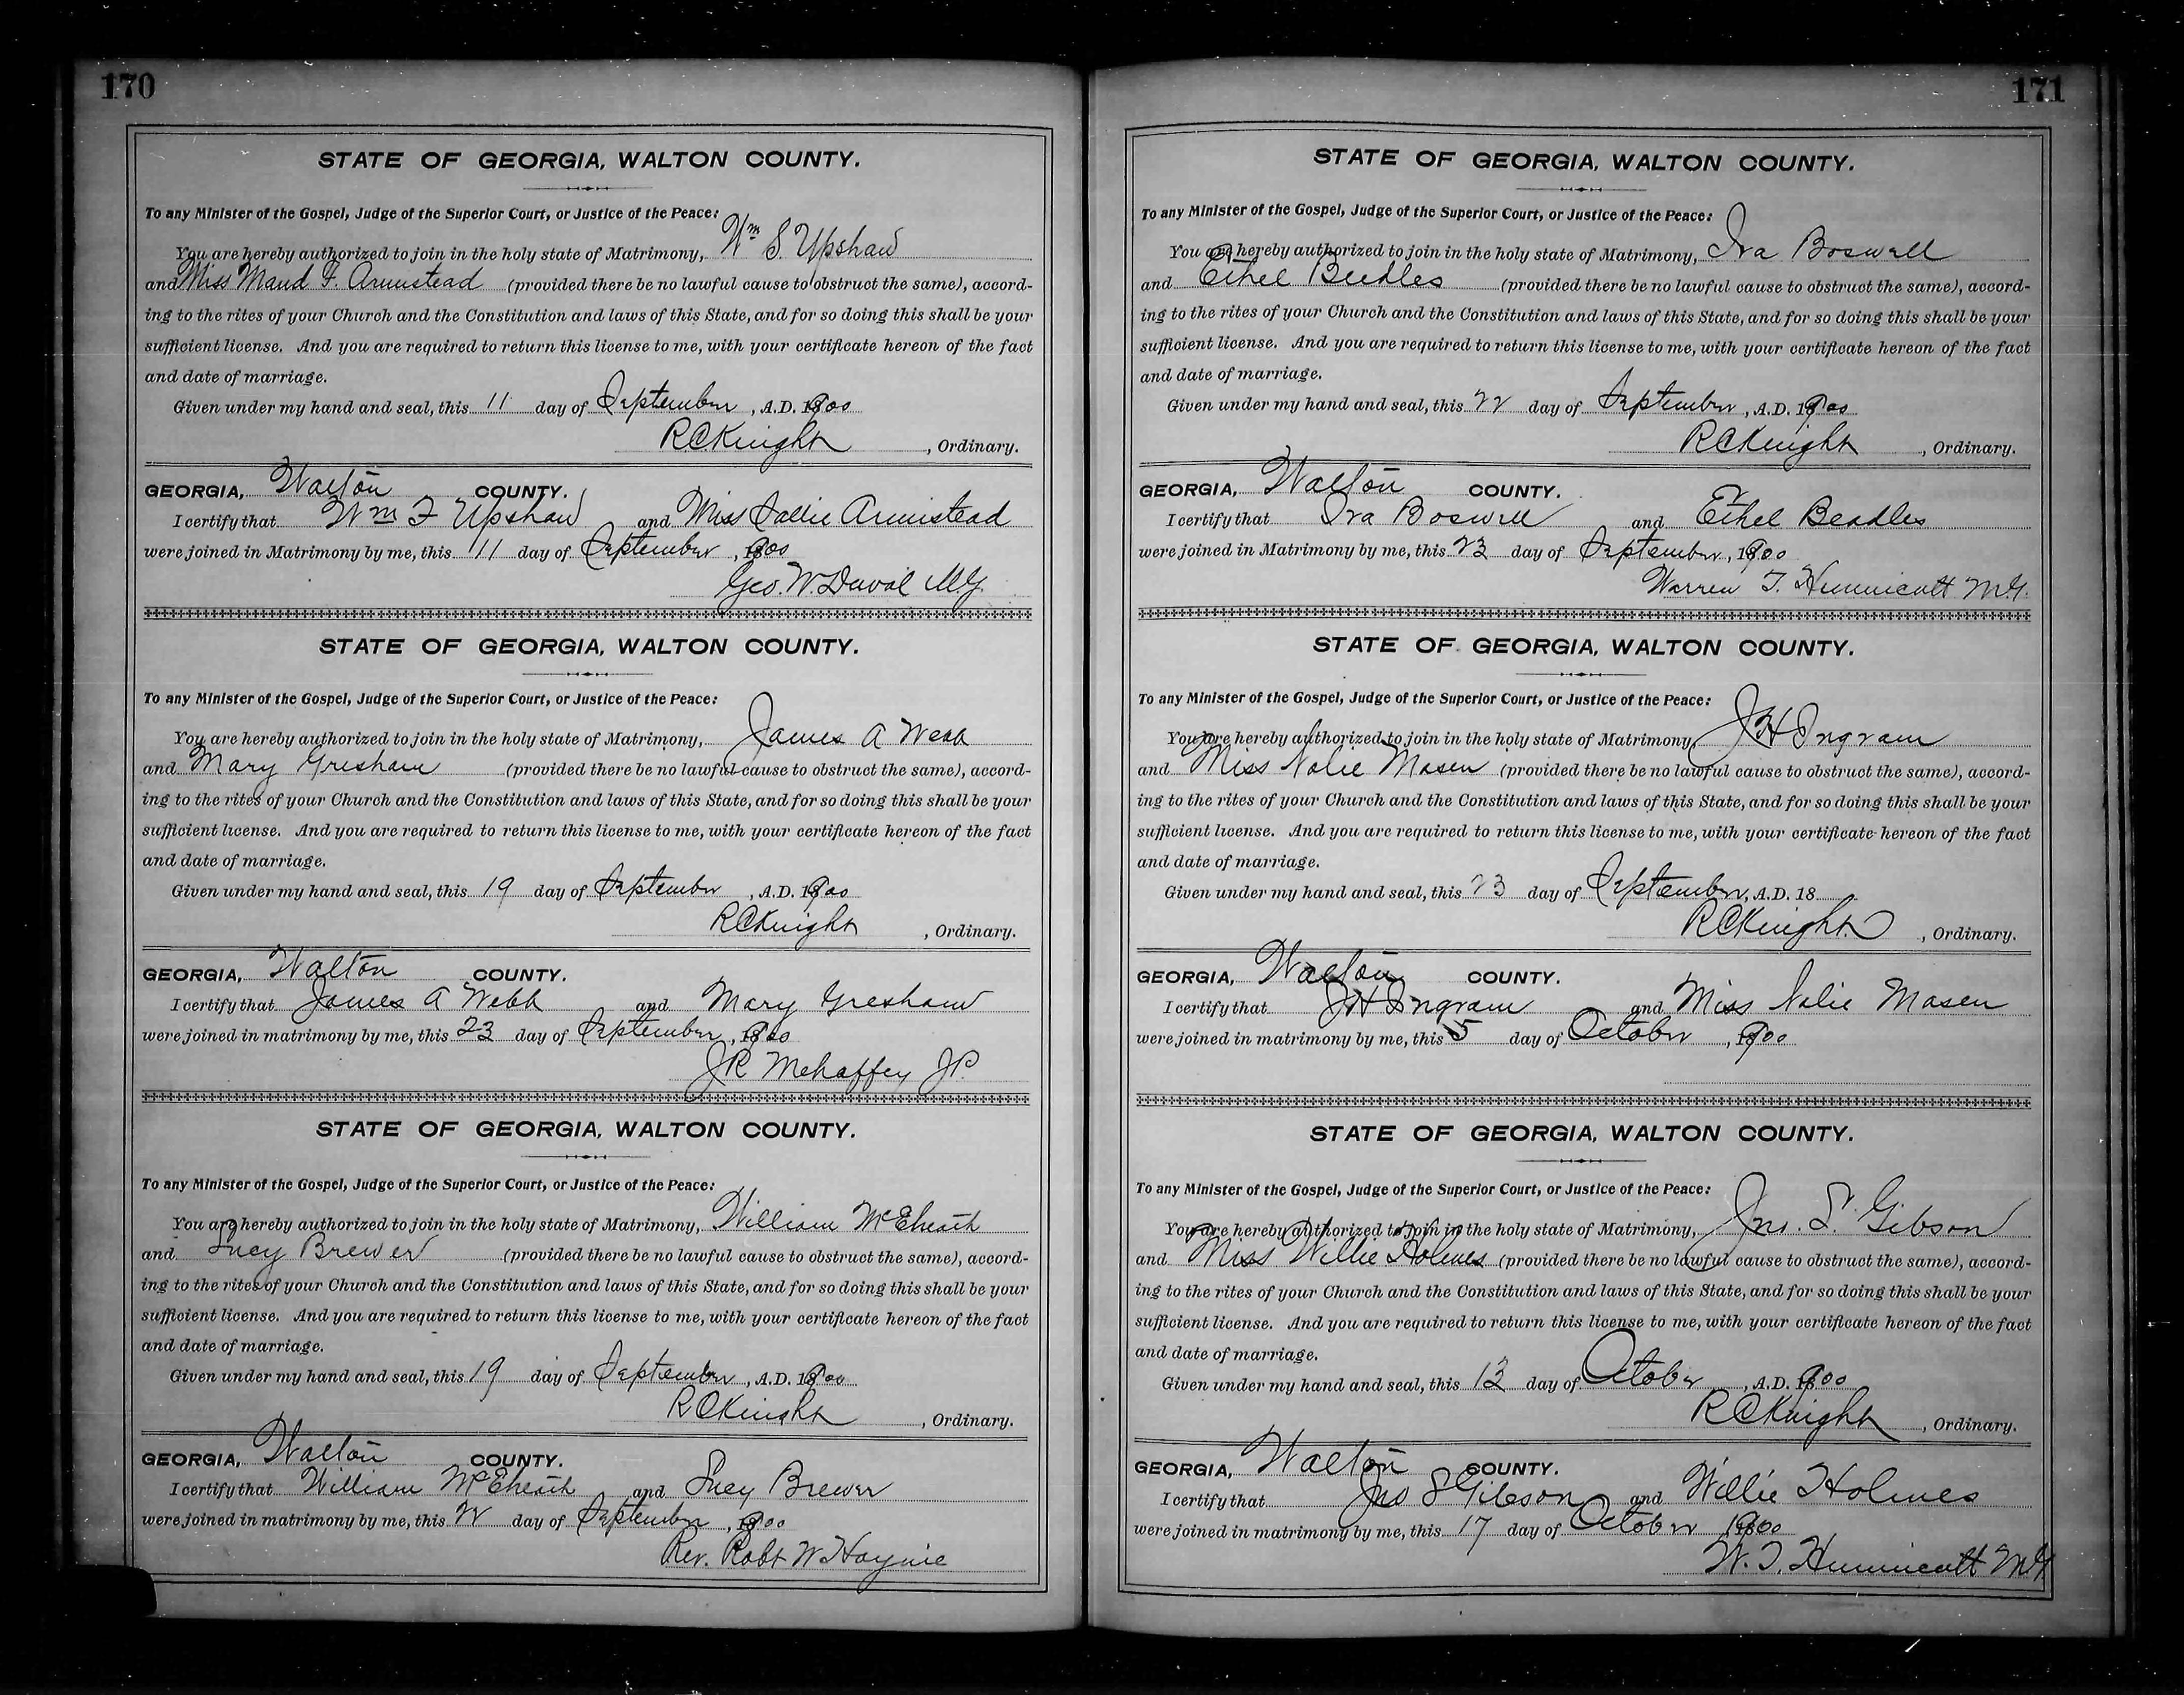 170
STATE OF GEORGIA, WALTON COUNTY.
To any Minister of the Gospel, Judge of the Superior Court, or Justice of the Peace:
You are hereby authorized to join in the holy state of Matrimony, Wm S. Upshaw
and Miss Maud F. Armistead (provided there be no lawful cause to obstruct the same), accord-
ing to the rites of your Church and the Constitution and laws of this State, and for so doing this shall be your
sufficient license. And you are required to return this license to me, with your certificate hereon of the fact
and date of marriage.
Given under my hand and seal, this 11 day of September, A.D. 1900
R C Knight, Ordinary.
GEORGIA, Walton COUNTY.
I certify that Wm F Upshaw and Miss Sallie Armistead
were joined in Matrimony by me, this 11 day of September, 1900
Geo. W. Duval M.G.
STATE OF GEORGIA, WALTON COUNTY.
To any Minister of the Gospel, Judge of the Superior Court, or Justice of the Peace:
You are hereby authorized to join in the holy state of Matrimony, James A Webb
and Mary Gresham (provided there be no lawful cause to obstruct the same), accord-
ing to the rites of your Church and the Constitution and laws of this State, and for so doing this shall be your
sufficient license. And you are required to return this license to me, with your certificate hereon of the fact
and date of marriage.
Given under my hand and seal, this 19 day of September, A.D. 1900
R C Knight, Ordinary.
GEORGIA, Walton COUNTY.
I certify that James A Webb and Mary Gresham
were joined in matrimony by me, this 23 day of September, 1900
J R Mehaffey J P.
STATE OF GEORGIA, WALTON COUNTY.
To any Minister of the Gospel, Judge of the Superior Court, or Justice of the Peace:
You are hereby authorized to join in the holy state of Matrimony, William
and Lucy Brewer (provided there be no lawful cause to obstruct the same), accord-
ing to the rites of your Church and the Constitution and laws of this State, and for so doing this shall be your
sufficient license. And you are required to return this license to me, with your certificate hereon of the fact
and date of marriage.
Given under my hand and seal, this 19 day of September, A.D. 1900
R C Knight, Ordinary.
GEORGIA, Walton COUNTY.
I certify that William and Lucy Brewer
were joined in matrimony by me, this 22 day of September, 1900
Rev. Robt W Haynie
171
STATE OF GEORGIA, WALTON COUNTY.
To any Minister of the Gospel, Judge of the Superior Court, or Justice of the Peace:
You are hereby authorized to join in the holy state of Matrimony, Ira Boswell
and Ethel Beedles (provided there be no lawful cause to obstruct the same), accord-
ing to the rites of your Church and the Constitution and laws of this State, and for so doing this shall be your
sufficient license. And you are required to return this license to me, with your certificate hereon of the fact
and date of marriage.
Given under my hand and seal, this 22 day of September, A.D. 1900
R C Knight, Ordinary.
GEORGIA, Walton COUNTY.
I certify that Ira Boswell and Ethel Beadles
were joined in Matrimony by me, this 23 day of September, 1900
Warren T. Hunnicutt M.G.
STATE OF GEORGIA, WALTON COUNTY.
To any Minister of the Gospel, Judge of the Superior Court, or Justice of the Peace:
You are hereby authorized to join in the holy state of Matrimony, J H Ingram
and Miss Nolie Masen (provided there be no lawful cause to obstruct the same), accord-
ing to the rites of your Church and the Constitution and laws of this State, and for so doing this shall be your
sufficient license. And you are required to return this license to me, with your certificate hereon of the fact
and date of marriage.
Given under my hand and seal, this 23 day of September, A.D. 18
R C Knight, Ordinary.
GEORGIA, Walton COUNTY.
I certify that J H Ingram and Miss Nolie Masen
were joined in matrimony by me, this 5 day of October, 1900
STATE OF GEORGIA, WALTON COUNTY.
To any Minister of the Gospel, Judge of the Superior Court, or Justice of the Peace:
You are hereby authorized to join in the holy state of Matrimony, Jno. S. Gibson
and Miss Willie Holmes (provided there be no lawful cause to obstruct the same), accord-
ing to the rites of your Church and the Constitution and laws of this State, and for so doing this shall be your
sufficient license. And you are required to return this license to me, with your certificate hereon of the fact
and date of marriage.
Given under my hand and seal, this 13 day of October, A.D. 1900
R C Knight, Ordinary.
GEORGIA, Walton COUNTY.
I certify that Jno S Gibson and Willie Holmes
were joined in matrimony by me, this 17 day of October 1900
W. T. Hunnicutt M.G.